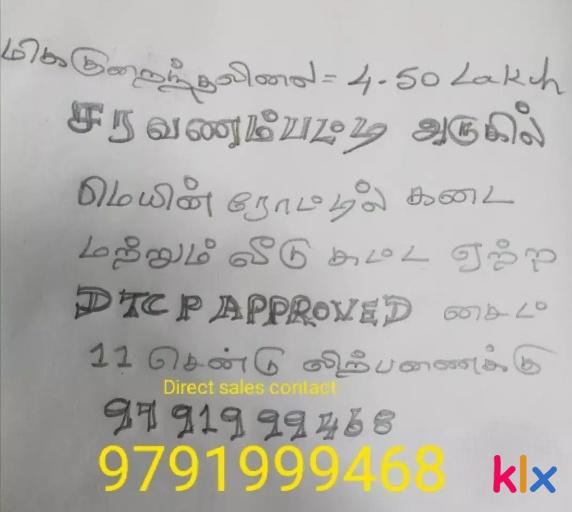 மிககுறைந்தவிலை = 4.50 Lakh
சரவணம்பட்டி அருகில்
மெயின் ரோட்டில் கடை
மற்றும் வீடு கட்ட ஏற்ற
DTCP APPROVED சைட்
11 சென்டு விற்பணைக்கு
Direct sales contact
9791999468
9791999468
klx